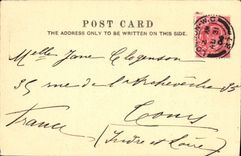 POST CARD
THE ADDRESS ONLY TO BE WRITTEN ON THIS SIDE.
Melle Jane Clogenson
35 rue de l'Archevêché 35
Tours
France
(Indre et Loire)